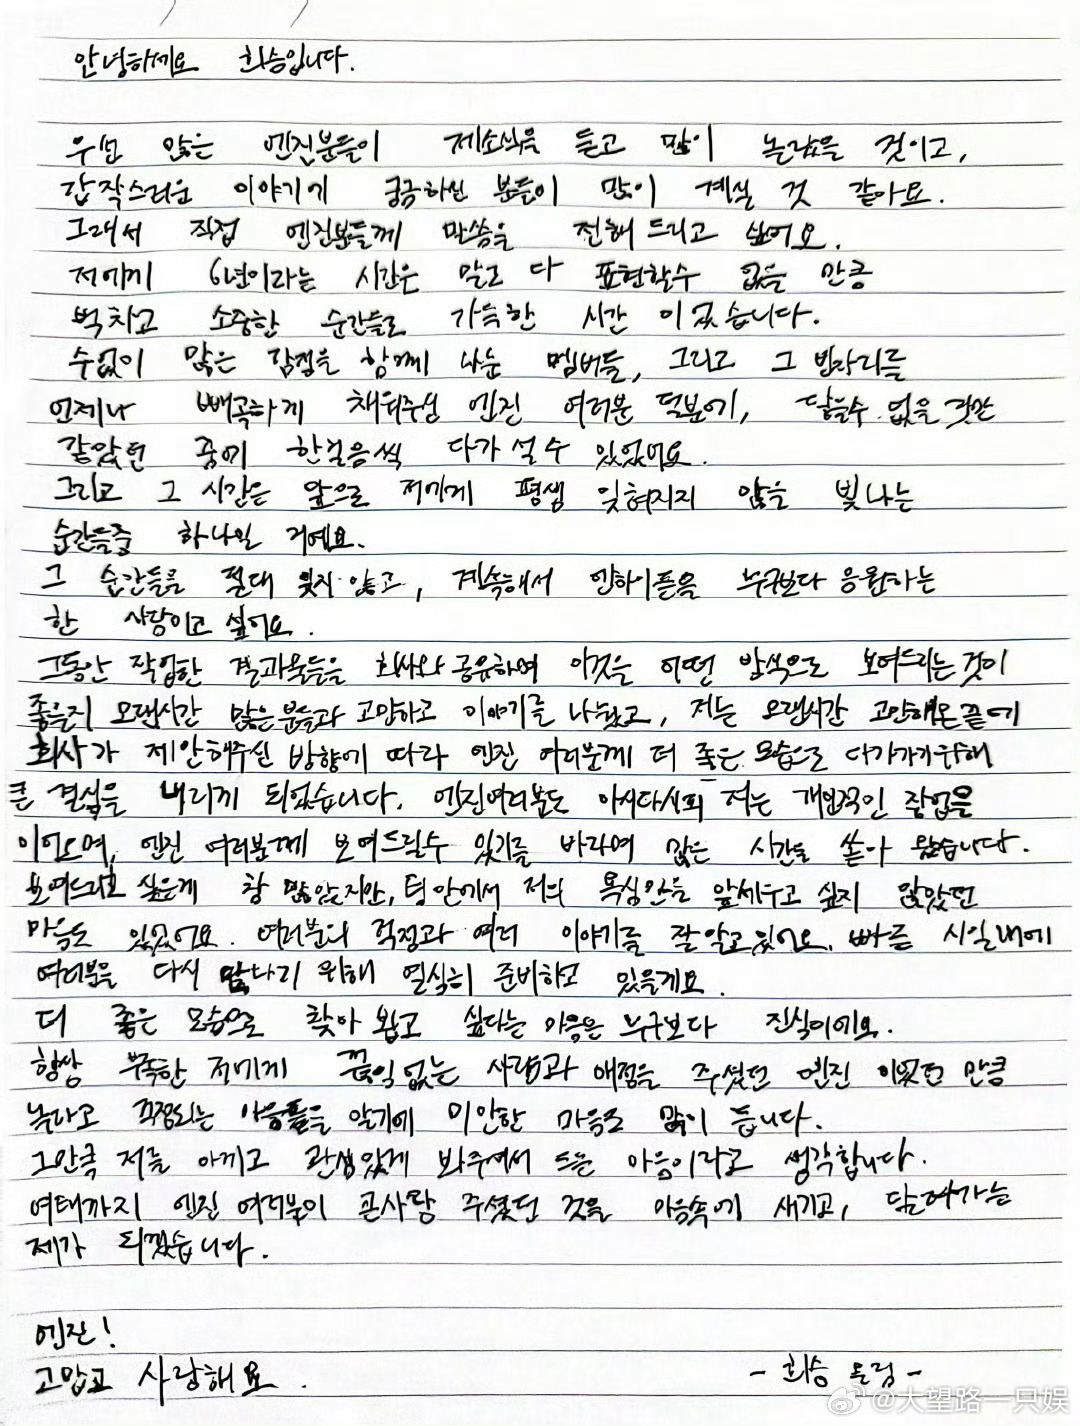 안녕하세요 희승입니다.
우선 많은 엔진분들이 제소식을 듣고 많이 놀랐을 것이고,
갑작스러운 이야기에 궁금하신 분들이 많이 계실 것 같아요.
그래서 직접 엔진분들께 말씀을 전해 드리고 싶어요.
저에게 6년이라는 시간은 말로 다 표현할수 없을 만큼
벅차고 소중한 순간들로 가득한 시간 이었습니다.
수없이 많은 감정을 함께 나눈 멤버들, 그리고 그 빈자리를
언제나 빼곡하게 채워주신 엔진 여러분 덕분에, 닿을수 없을 것만
같았던 꿈에 한걸음씩 다가 설 수 있었어요.
그리고 그 시간은 앞으로 저에게 평생 잊혀지지 않을 빛나는
순간들중 하나일 거예요.
그 순간들을 절대 잊지 않고, 계속해서 엔하이픈을 누구보다 응원하는
한 사람이고 싶어요.
그동안 작업한 결과물들을 회사와 공유하며 이것을 어떤 방식으로 보여드리는 것이
좋을지 오랜시간 많은 분들과 고민하고 이야기를 나눴고, 저는 오랜시간 고민해온 끝에
회사가 제안해주신 방향에 따라 엔진 여러분께 더 좋은 모습으로 다가가기위해
큰 결심을 내리게 되었습니다. 엔진여러분도 아시다시피 저는 개인적인 작업을
이어오며, 엔진 여러분께 보여드릴수 있기를 바라며 많은 시간을 쏟아 왔습니다.
보여드리고 싶은게 참 많았지만, 팀 안에서 저의 욕심만을 앞세우고 싶지 않았던
마음도 있었어요. 여러분의 걱정과 여러 이야기를 잘 알고 있어요. 빠른 시일내에
여러분을 다시 만나기 위해 열심히 준비하고 있을게요.
더 좋은 모습으로 찾아 뵙고 싶다는 마음은 누구보다 진심이에요.
항상 부족한 저에게 끊임없는 사랑과 애정을 주셨던 엔진 이었던 만큼
놀라고 걱정되는 마음들을 알기에 미안한 마음도 많이 듭니다.
그만큼 저를 아끼고 관심있게 봐주셔서 드는 마음이라고 생각합니다.
여태까지 엔진 여러분이 큰사랑 주셨던 것을 마음속에 새기고, 담아가는
제가 되겠습니다.
엔진!
고맙고 사랑해요.
- 희승 올림 -
@大望路一只娱